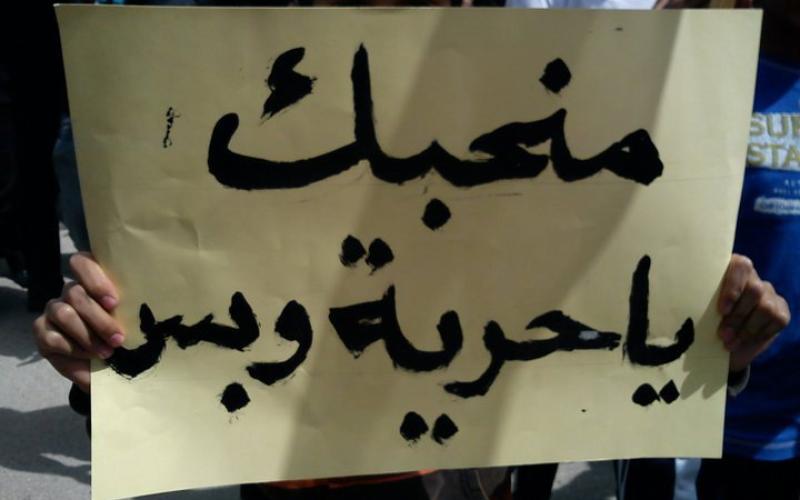 منحبك
يا حرية وبس
SU
STA